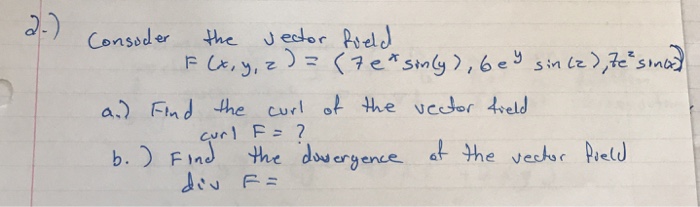 2.) Consider the vector field
F(x, y, z) = (7e^x sin(y), 6e^y sin(z), 7e^z sin(x))
a.) Find the curl of the vector field
curl F = ?
b.) Find the divergence of the vector field
div F =